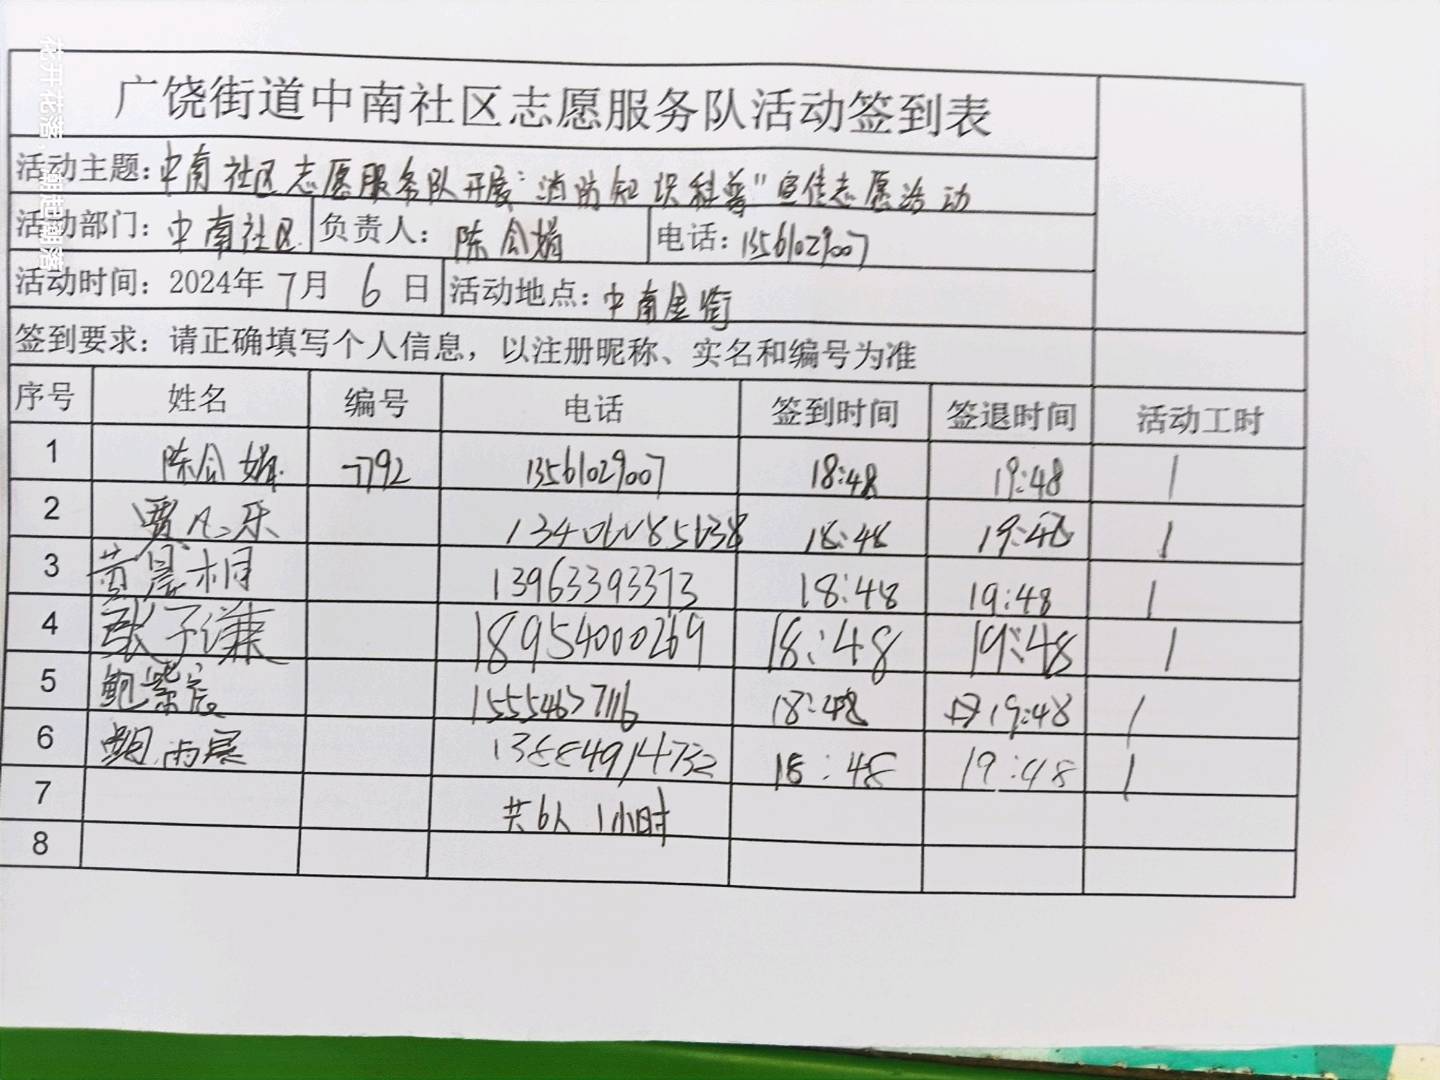 广饶街道中南社区志愿服务队活动签到表
活动主题:中南社区志愿服务队开展"消防知识科普"宣传志愿活动
活动部门:中南社区 负责人: 陈会娟 电话:13561029007
活动时间:2024年 7月 6 日 活动地点:中南金街
签到要求:请正确填写个人信息,以注册昵称、实名和编号为准
序号 姓名 编号 电话 签到时间 签退时间 活动工时
1 陈会娟 7792 13561029007 18:48 19:48 1
2 贾凡乐 18:48 19:48 1
3 黄晨桐 13963393373 18:48 19:48 1
4 张子谦 18954000269 18:48 19:48 1
5 鲍紫宸 15554637116 18:48 19:48 1
6 雨宸 13884914732 18:48 19:48 1
7 共6人 1小时
8
花开花落,潮起潮落